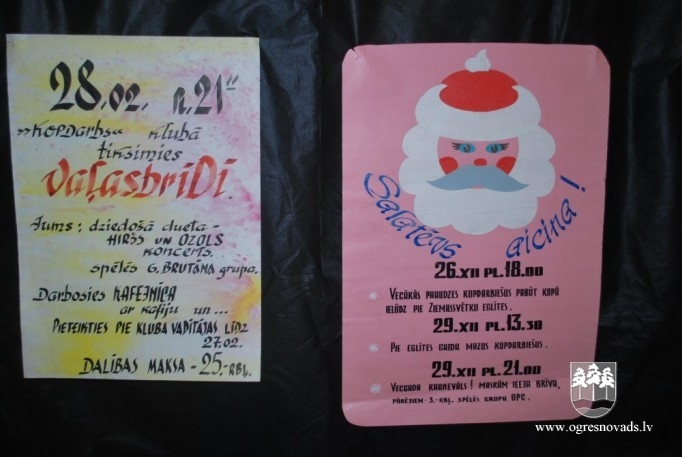 28.02. n.21⁰⁰
„KOPDARBS“ klubā
tiksimies
VAĻASBRĪDĪ.
Jums: dziedošā dueta -
HIRŠS UN OZOLS
KONCERTS.
spēlēs G. BRUTĀNA grupa.
Darbosies KAFEJNĪCA
ar kafiju un ...
PIETEIKTIES PIE KLUBA VADĪTĀJAS LĪDZ
27.02.
DALĪBAS MAKSA - 25.- RBĻ.
Salatēvs aicina!
26.XII PL.18.00
VECĀKĀS PAAUDZES KOPDARBIEŠUS PABŪT KOPĀ
IELŪDZ PIE ZIEMASSVĒTKU EGLĪTES.
29.XII PL.13.30
PIE EGLĪTES GAIDA MAZOS KOPDARBIEŠUS.
29.XII PL.21.00
VECGADA KARNEVĀLS! MASKĀM IEEJA BRĪVA,
PĀRĒJIEM - 3.- RBĻ. SPĒLĒS GRUPA OPC.
www.ogresnovads.lv